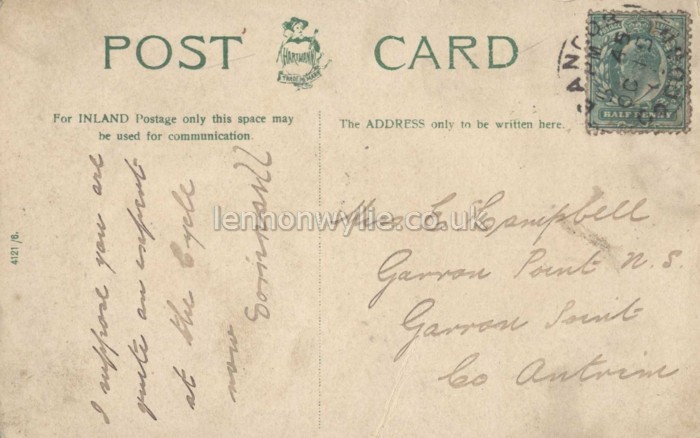 POST CARD
HARTMANN
TRADE MARK
For INLAND Postage only this space may
be used for communication.
The ADDRESS only to be written here.
HALF PENNY
BANGOR
4121/6.
I suppose you are
quite an expert
at the Cycle
now
lennonwylie.co.uk
Miss E Campbell
Garron Point N.S.
Garron Point
Co Antrim